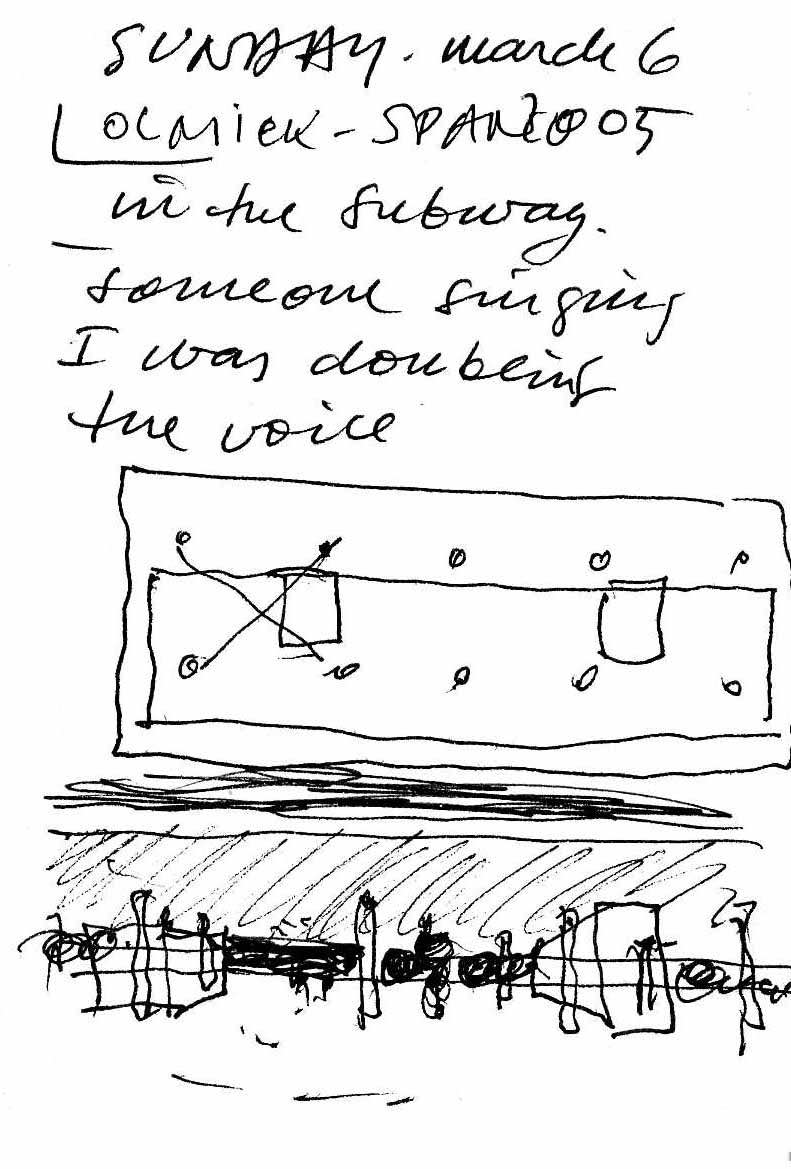 SUNDAY. march 6
OLNiCK -
in the subway.
someone singing
I was doubling
the voice